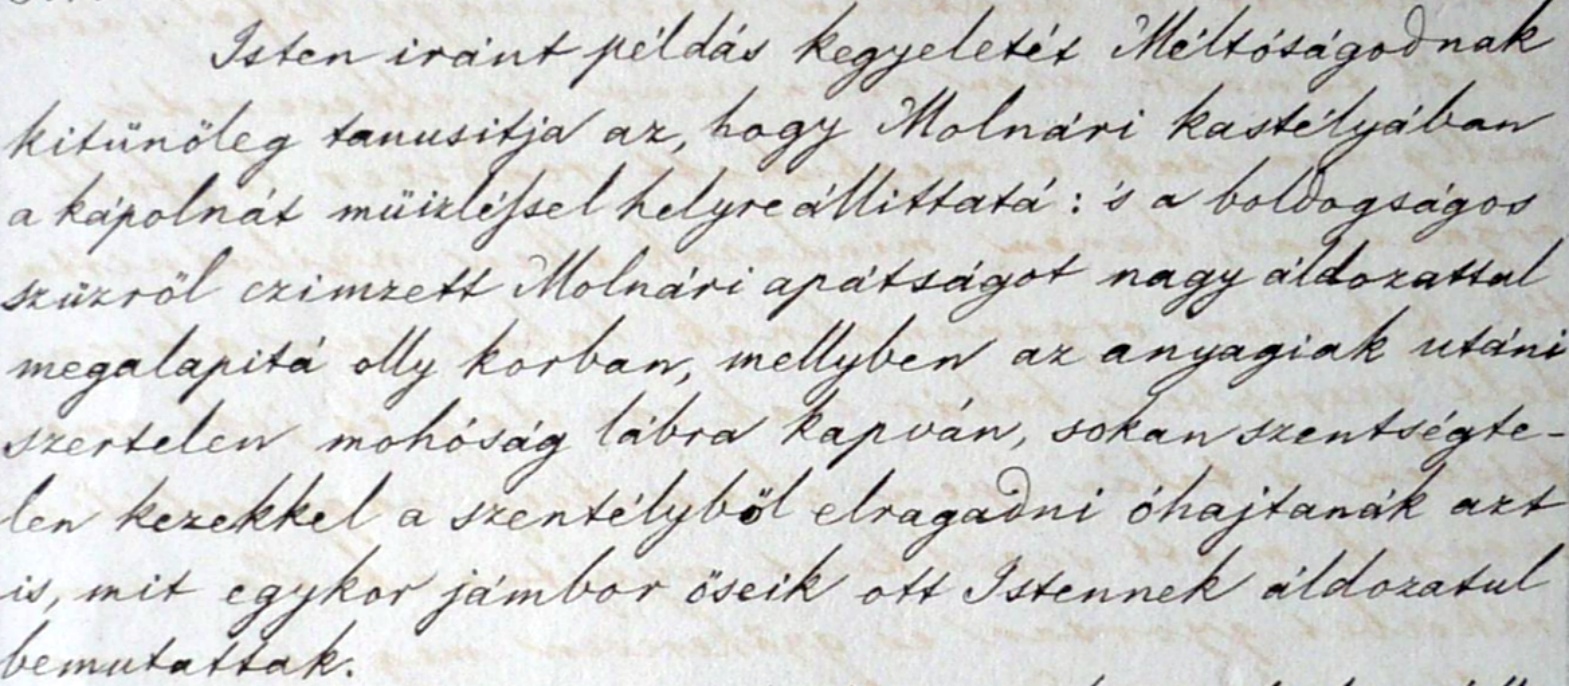 Isten iránt példás kegyeletét Méltóságodnak
kitünöleg tanusitja az, hogy Molnári kastélyában
a kápolnát müizléssel helyreállittatá: 's a boldogságos
szüzröl czimzett Molnári apátságot nagy áldozattal
megalapitá olly korban, mellyben az anyagiak utáni
szertelen mohóság lábra kapván, sokan szentségte-
len kezekkel a szentélyböl elragadni óhajtanák azt
is, mit egykor jámbor öseik ott Istennek áldozatul
bemutattak.